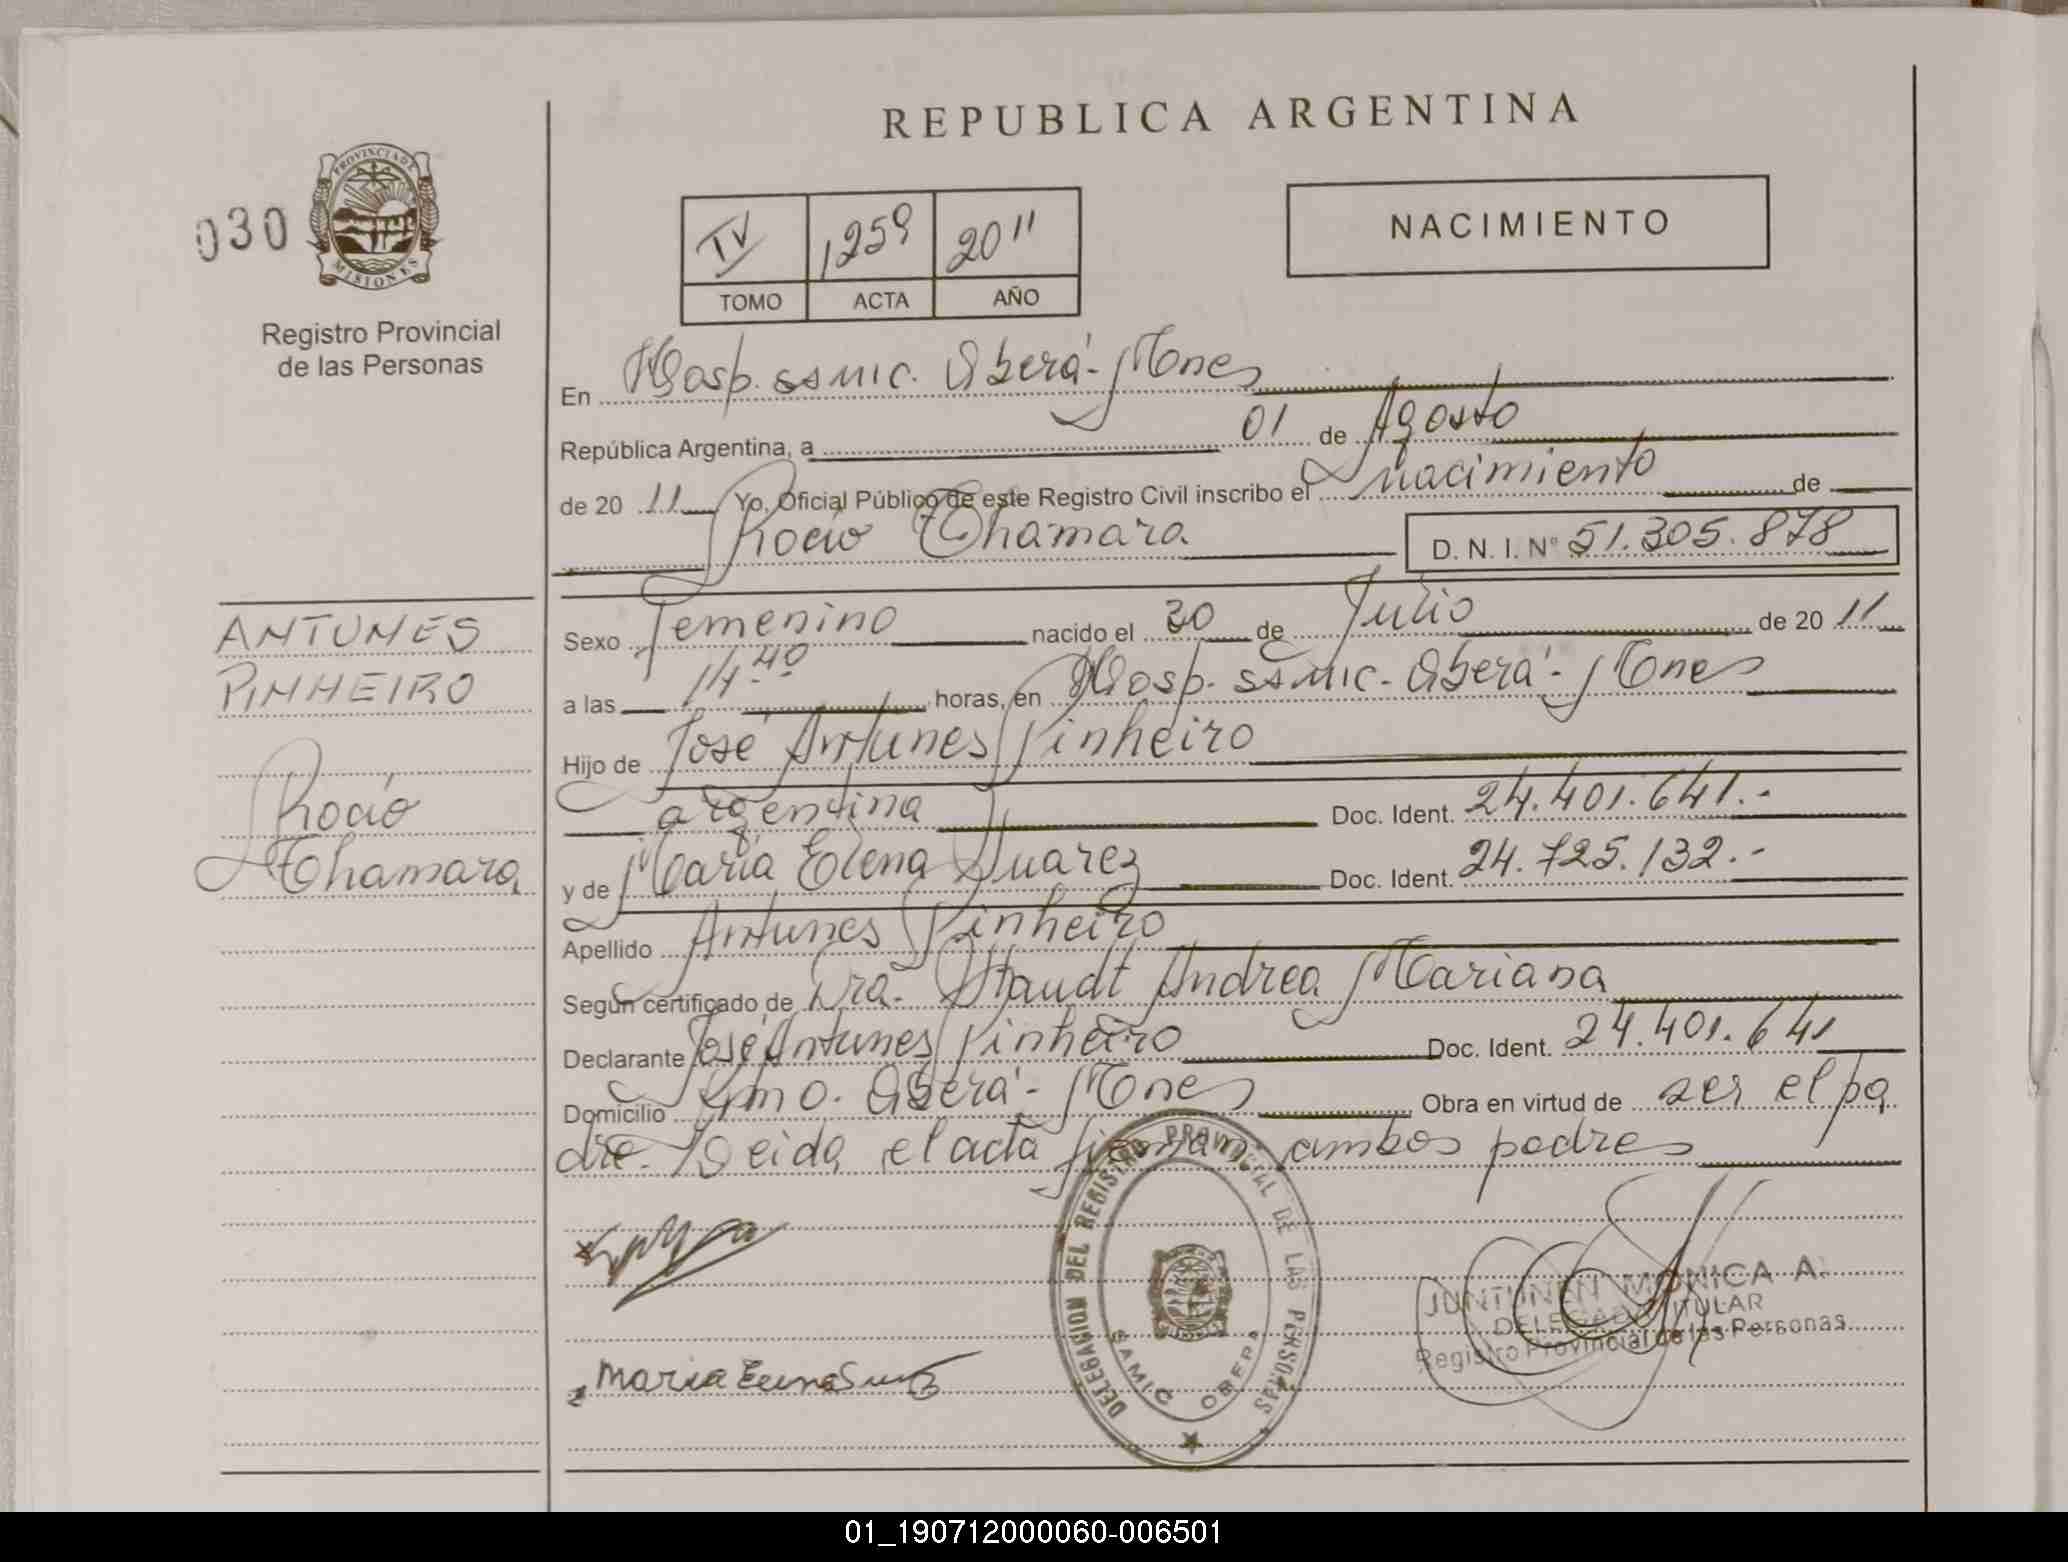 REPUBLICA ARGENTINA
030
PROVINCIA DE
MISIONES
Registro Provincial
de las Personas
IV 1259 2011
TOMO ACTA AÑO
NACIMIENTO
En Hosp. SAMIC. Oberá - Mnes
República Argentina, a 01 de Agosto
de 20 11 Yo, Oficial Público de este Registro Civil inscribo el nacimiento de
Rocío Thamara D. N. I. Nº 51.305.878
ANTUNES
PINHEIRO
Rocío
Thamara
Sexo Femenino nacido el 30 de Julio de 20 11
a las 14.40 horas, en Hosp. SAMIC - Oberá - Mnes
Hijo de José Antunes Pinheiro
argentina Doc. Ident. 24.401.641.-
y de María Elena Suarez Doc. Ident. 24.725.132.-
Apellido Antunes Pinheiro
Según certificado de Dra. Staudt Andrea Mariana
Declarante José Antunes Pinheiro Doc. Ident. 24.401.641
Domicilio Kmo. Oberá - Mnes Obra en virtud de ser el pa
dre. Leida el acta firman ambos padres
DELEGACION DEL REGISTRO PROVINCIAL DE LAS PERSONAS
SAMIC OBERA
JUNTUNEN MONICA A.
DELEGADO TITULAR
Registro Provincial de las Personas
Maria Elena Suarez
01_190712000060-006501